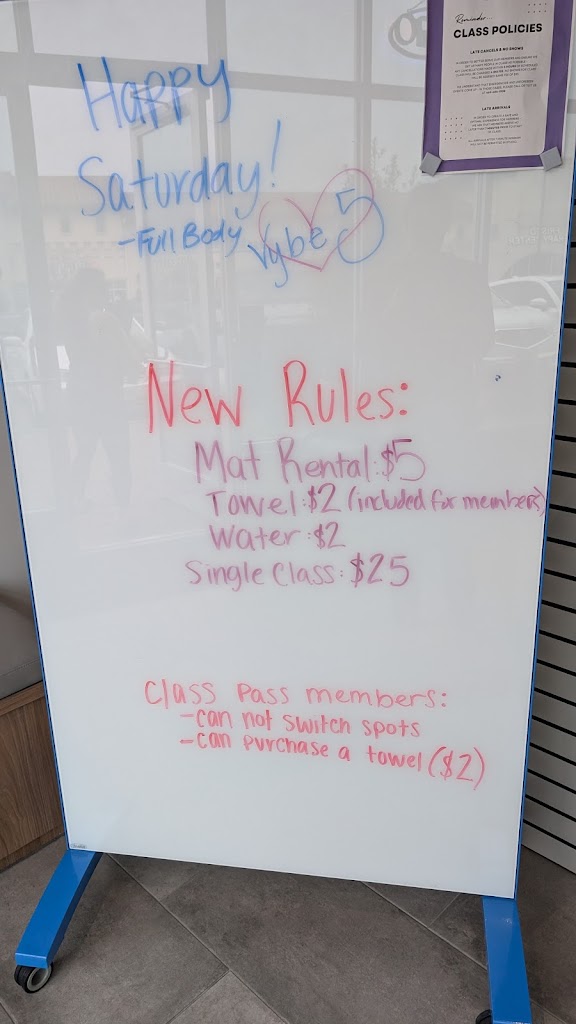 Happy
Saturday!
-Full Body Vybe 5
New Rules:
Mat Rental: $5
Towel: $2 (included for members)
Water: $2
Single Class: $25
Class Pass members:
-can not switch spots
-can purchase a towel ($2)
Reminder...
CLASS POLICIES
LATE CANCELS & NO SHOWS
LATE ARRIVALS